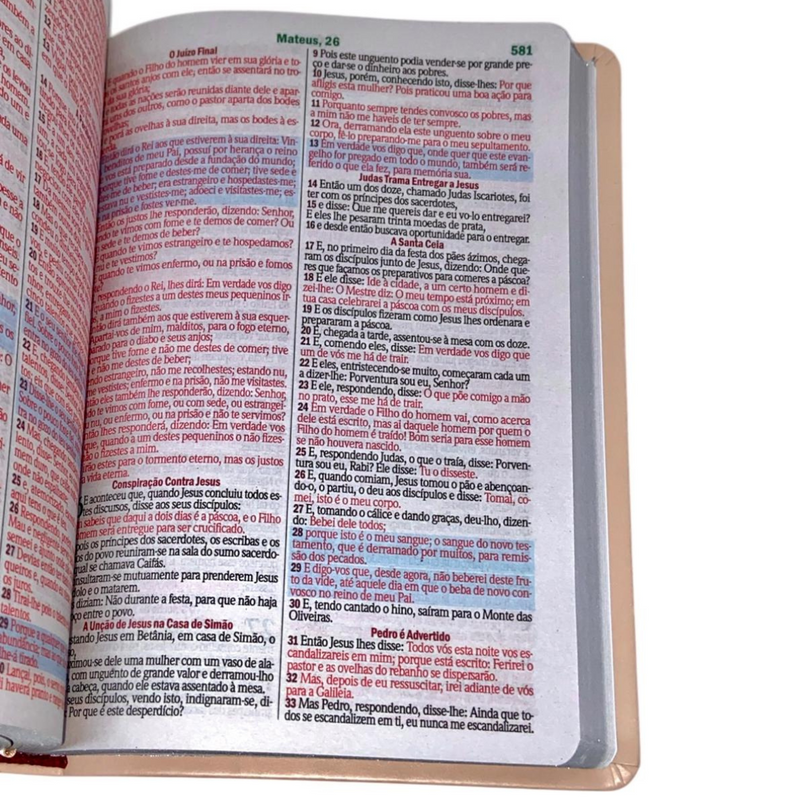 Mateus, 26
581
O Juízo Final
quando o Filho do homem vier em sua glória e to-
santos anjos com ele, então se assentará no tro-
sua glória;
as nações serão reunidas diante dele e apar-
uns dos outros, como o pastor aparta dos bodes
ovelhas;
porá as ovelhas à sua direita, mas os bodes à es-
dirá o Rei aos que estiverem à sua direita: Vin-
benditos de meu Pai, possuí por herança o reino
está preparado desde a fundação do mundo;
porque tive fome e destes-me de comer; tive sede e
de beber; era estrangeiro e hospedastes-me;
nu e vestistes-me; adoeci e visitastes-me; es-
na prisão e fostes ver-me.
os justos lhe responderão, dizendo: Senhor,
te vimos com fome e te demos de comer? Ou
sede e te demos de beber?
quando te vimos estrangeiro e te hospedamos?
e te vestimos?
quando te vimos enfermo, ou na prisão e fomos
respondendo o Rei, lhes dirá: Em verdade vos digo
quando o fizestes a um destes meus pequeninos ir-
a mim o fizestes.
dirá também aos que estiverem à sua esquer-
Apartai-vos de mim, malditos, para o fogo eterno,
para o diabo e seus anjos;
porque tive fome e não me destes de comer; tive
não me destes de beber;
estrangeiro, não me recolhestes; estando nu,
vestistes; enfermo e na prisão, não me visitastes.
eles também lhe responderão, dizendo: Senhor,
te vimos com fome, ou com sede, ou estrangei-
nu, ou enfermo, ou na prisão e não te servimos?
lhes responderá, dizendo: Em verdade vos
que, quando a um destes pequeninos o não fizes-
o fizestes a mim.
irão estes para o tormento eterno, mas os justos
vida eterna.
Conspiração Contra Jesus
E aconteceu que, quando Jesus concluiu todos es-
tes discursos, disse aos seus discípulos:
sabeis que daqui a dois dias é a páscoa, e o Filho
homem será entregue para ser crucificado.
os príncipes dos sacerdotes, os escribas e os
do povo reuniram-se na sala do sumo sacerdo-
qual se chamava Caifás.
consultaram-se mutuamente para prenderem Jesus
dolo e o matarem.
diziam: Não durante a festa, para que não haja
entre o povo.
A Unção de Jesus na Casa de Simão
estando Jesus em Betânia, em casa de Simão, o
aproximou-se dele uma mulher com um vaso de ala-
com unguento de grande valor e derramou-lho
cabeça, quando ele estava assentado à mesa.
seus discípulos, vendo isto, indignaram-se, di-
Por que é este desperdício?
9 Pois este unguento podia vender-se por grande pre-
ço e dar-se o dinheiro aos pobres.
10 Jesus, porém, conhecendo isto, disse-lhes: Por que
afligis esta mulher? Pois praticou uma boa ação para
comigo.
11 Porquanto sempre tendes convosco os pobres, mas
a mim não me haveis de ter sempre.
12 Ora, derramando ela este unguento sobre o meu
corpo, fê-lo preparando-me para o meu sepultamento.
13 Em verdade vos digo que, onde quer que este evan-
gelho for pregado em todo o mundo, também será re-
ferido o que ela fez, para memória sua.
Judas Trama Entregar a Jesus
14 Então um dos doze, chamado Judas Iscariotes, foi
ter com os príncipes dos sacerdotes,
15 e disse: Que me quereis dar e eu vo-lo entregarei?
E eles lhe pesaram trinta moedas de prata,
16 e desde então buscava oportunidade para o entregar.
A Santa Ceia
17 E, no primeiro dia da festa dos pães ázimos, chega-
ram os discípulos junto de Jesus, dizendo: Onde que-
res que façamos os preparativos para comeres a páscoa?
18 E ele disse: Ide à cidade, a um certo homem e di-
zei-lhe: O Mestre diz: O meu tempo está próximo; em
tua casa celebrarei a páscoa com os meus discípulos.
19 E os discípulos fizeram como Jesus lhes ordenara e
prepararam a páscoa.
20 E, chegada a tarde, assentou-se à mesa com os doze.
21 E, comendo eles, disse: Em verdade vos digo que
um de vós me há de trair.
22 E eles, entristecendo-se muito, começaram cada um
a dizer-lhe: Porventura sou eu, Senhor?
23 E ele, respondendo, disse: O que põe comigo a mão
no prato, esse me há de trair.
24 Em verdade o Filho do homem vai, como acerca
dele está escrito, mas ai daquele homem por quem o
Filho do homem é traído! Bom seria para esse homem
se não houvera nascido.
25 E, respondendo Judas, o que o traía, disse: Porven-
tura sou eu, Rabi? Ele disse: Tu o disseste.
26 E, quando comiam, Jesus tomou o pão e abençoan-
do-o, o partiu, o deu aos discípulos e disse: Tomai, co-
mei, isto é o meu corpo.
27 E, tomando o cálice e dando graças, deu-lho, dizen-
do: Bebei dele todos;
28 porque isto é o meu sangue; o sangue do novo tes-
tamento, que é derramado por muitos, para remis-
são dos pecados.
29 E digo-vos que, desde agora, não beberei deste fru-
to da vide, até aquele dia em que o beba de novo con-
vosco no reino de meu Pai.
30 E, tendo cantado o hino, saíram para o Monte das
Oliveiras.
Pedro é Advertido
31 Então Jesus lhes disse: Todos vós esta noite vos es-
candalizareis em mim; porque está escrito: Ferirei o
pastor e as ovelhas do rebanho se dispersarão.
32 Mas, depois de eu ressuscitar, irei adiante de vós
para a Galileia.
33 Mas Pedro, respondendo, disse-lhe: Ainda que to-
dos se escandalizem em ti, eu nunca me escandalizarei.